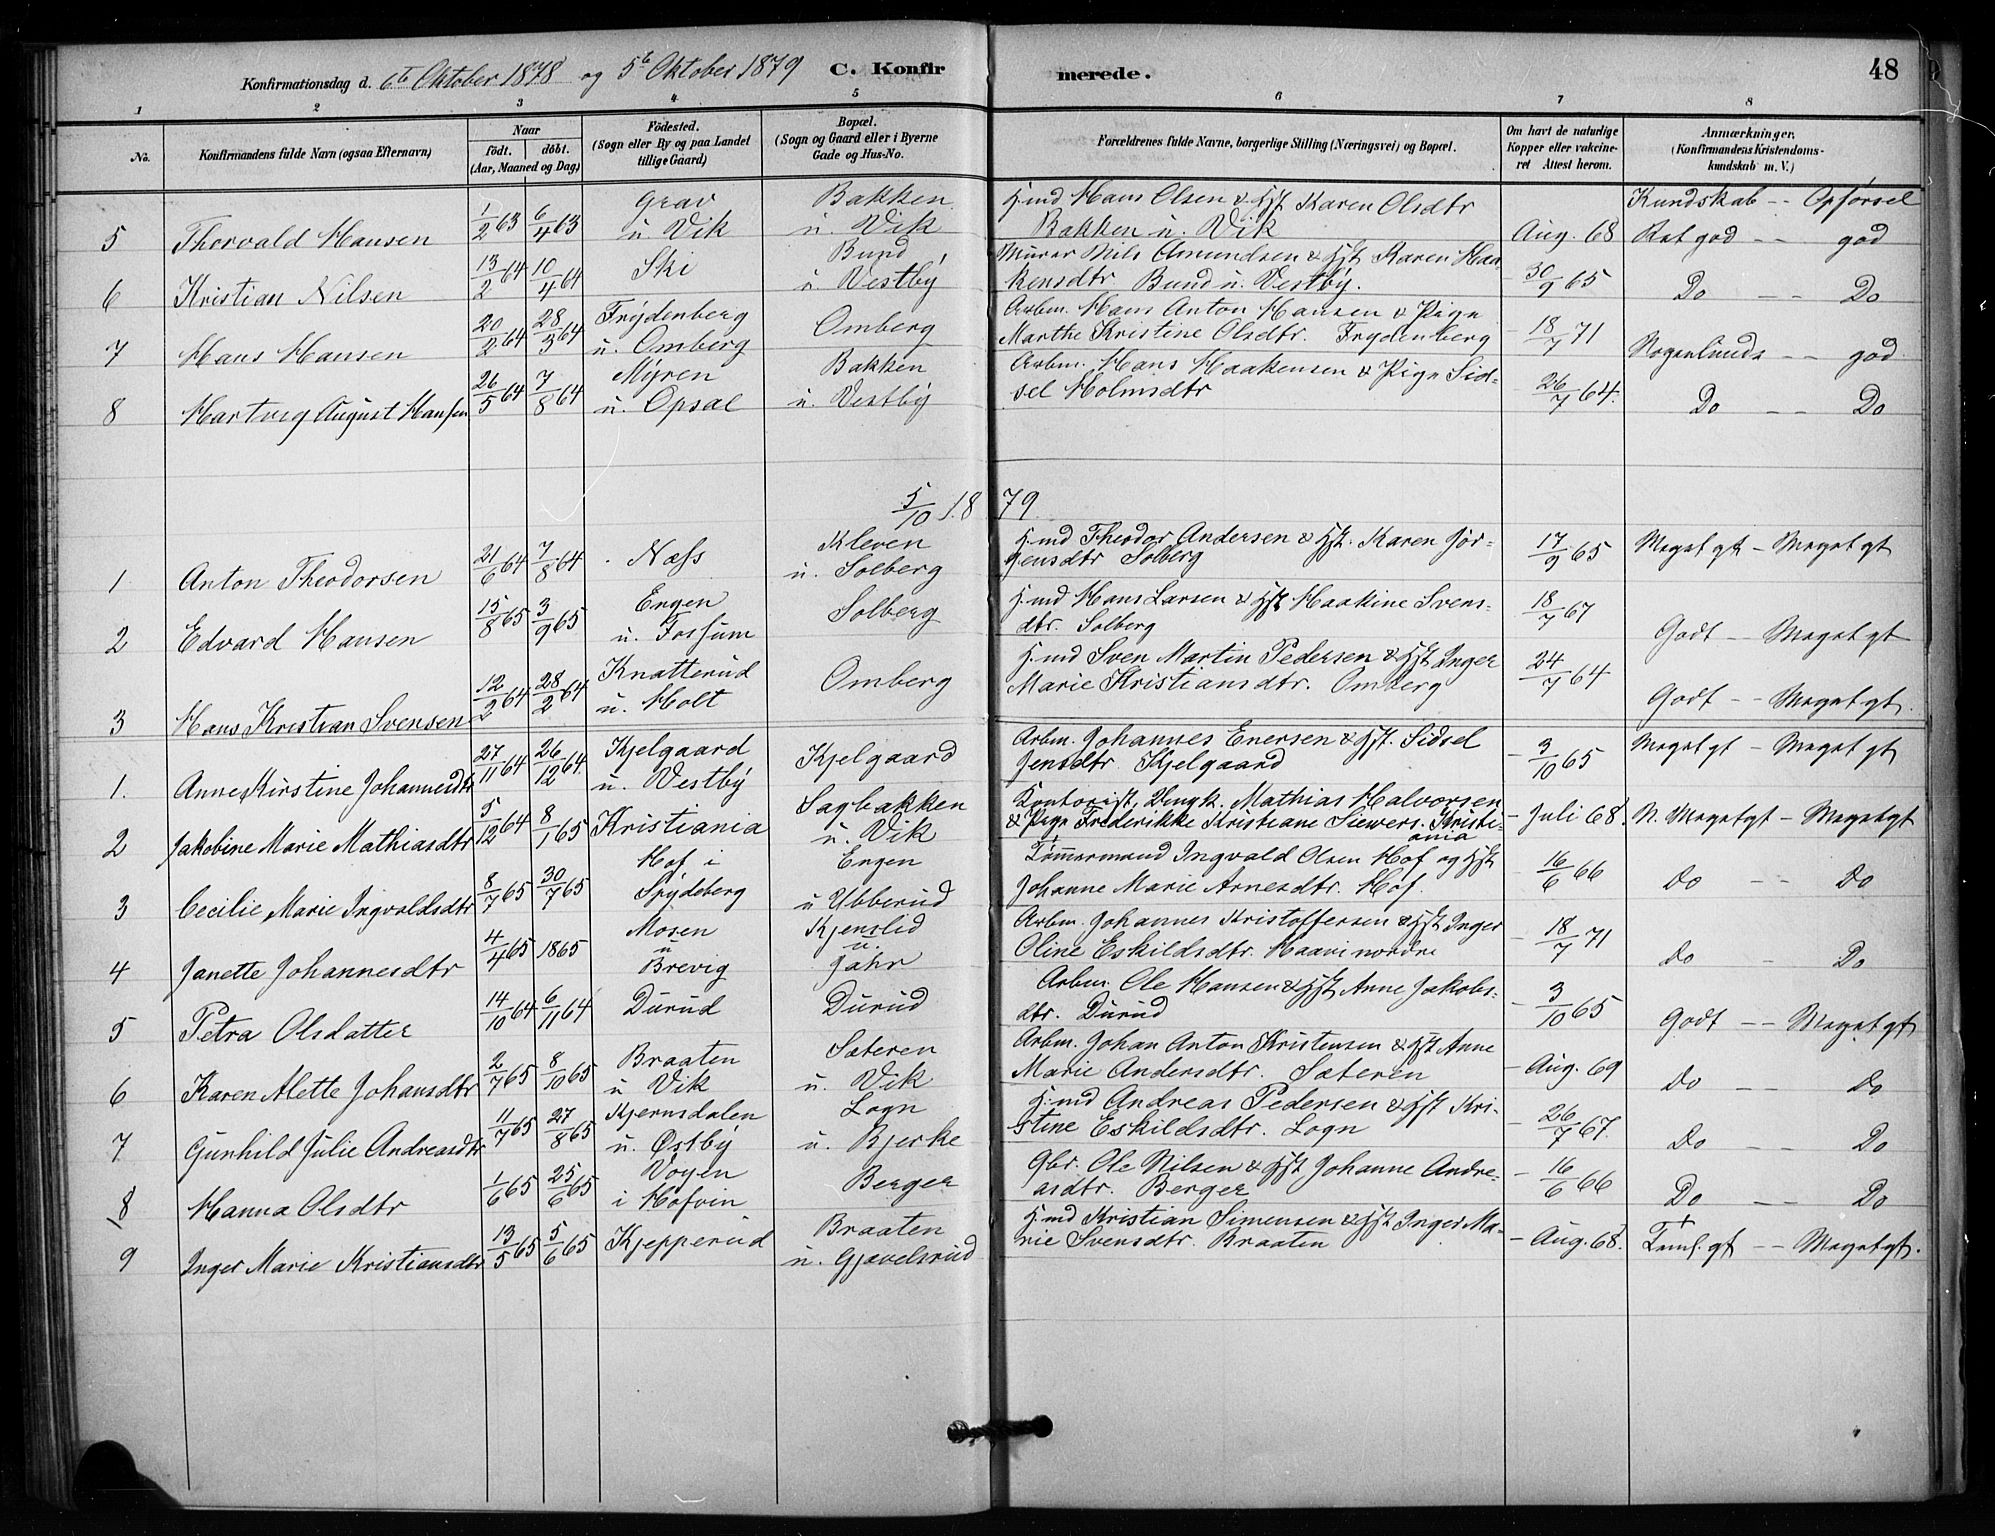 Konfirmationsdag d. 6te Oktober 1878 og 5te Oktober 1879 C. Konfirmerede. 48
1 2 3 4 5 6 7 8
No. Konfirmandens fulde Navn (ogsaa Efternavn) Naar födt. döbt. (Aar, Maaned og Dag) Födested. (Sogn eller By og paa Landet tillige Gaard) Bopæl. (Sogn og Gaard eller i Byerne Gade og Hus-No. Forældrenes fulde Navne, borgerlige Stilling (Næringsvei) og Bopæl. Om havt de naturlige Kopper eller vakcineret Attest herom. Anmærkninger. (Konfirmandens Kristendomskundskab m. V.)
Kundskab -- Opförsel
5 Thorvald Hansen 1/2 63 6/4 63 Grav u. Vik Bakken u. Vik H.md Hans Olsen & Hst Karen Olsdtr Bakken u. Vik Aug. 68 Ret god -- god
6 Kristian Nilsen 13/2 64 10/4 64 Ski Bund u Vestby Murer Nils Amundsen & Hst Karen Haakensdtr Bund u. Vestby. 30/9 65 Do -- Do
7 Hans Hansen 20/2 64 28/3 64 Frydenberg u. Omberg Omberg Arbm. Hans Anton Hansen & Pige Marthe Kristine Olsdtr. Frydenberg 18/7 71 Nogenlunde -- god
8 Hartvig August Hansen 26/5 64 7/8 64 Myren u. Opsal Bakken u. Vestby Arbm. Hans Haakensen & Pige Sidsel Holmsdtr 26/7 64. Do -- Do
5/10 1879
1 Anton Theodorsen 21/6 64 7/8 64 Næss Kleven u. Solberg H.md Theodor Andersen & Hst. Karen Jörgensdtr Solberg 17/9 65 Meget gt - Meget gt
2 Edvard Hansen 15/8 65 3/9 65 Engen u. Fossum Solberg H.md Hans Larsen & Hst Haakine Svensdtr. Solberg 18/7 67 Godt -- Meget gt
3 Hans Kristian Svensen 12/2 64 28/2 64 Knatterud u. Holt Omberg H.md Sven Martin Pedersen & Hst Inger Marie Kristiansdtr. Omberg 24/7 64 Godt -- Meget gt.
1. Anne Kirstine Johannesdtr 27/11 64 26/12 64. Kjelgaard u. Vestby Kjelgaard Arbm. Johannes Enersen & Hst. Sidsel Jensdtr. Kjelgaard - 3/10 65 Meget gt - Meget gt
2 Jakobine Marie Mathiasdtr 5/12 64 8/1 65 Kristiania Sagbakken u. Vik Kontorist, Ungk. Mathias Halvorsen & Pige Frederikke Kristiane Siewers. Kristiania - Juli 68. N. Meget gt - Meget gt
3 Cecilie Marie Ingvaldsdtr 8/7 65 30/7 65 Hof i Spydeberg Engen u Ubberud Tömmermand Ingvald Olsen Hof og Hst Johanne Marie Arnesdtr. Hof. - 16/6 66 Do -- Do
4 Janette Johannesdtr 4/4 65 1865 Mosen u Brevig Kjenslid u. Jahr Arbm. Johannes Kristoffersen & Hst Inger Oline Eskildsdtr. Haavi nordre - 18/7 71 Do - Do
5 Petra Olsdatter 14/10 64 6/11 64 Durud Durud Arbm. Ole Hansen & Hst Anne Jakobsdtr. Durud - 3/10 65 Godt -- Meget gt
6 Karen Alette Johansdtr 2/7 65 8/10 65 Braaten u Vik Sæteren u. Vik Arbm. Johan Anton Kristensen & Hst Anne Marie Andersdtr. Sæteren - Aug. 69 Do -- Do
7 Gunhild Julie Andreasdtr 11/7 65 27/8 65 Kjernsdalen u. Østby Logn u. Bjerke H.md Andreas Pedersen & Hst Kristine Eskildsdtr. Logn - 26/7 67. Do -- Do
8 Hanna Olsdtr 1/6 65 25/6 65 Voyen i Hofvin Berger Gbr. Ole Nilsen & Hst Johanne Andreasdtr. Berger - 16/6 66 Do -- Do
9 Inger Marie Kristiansdtr 13/5 65 5/6 65 Kjepperud Braaten u. Gjavelsrud H.md Kristian Simensen & Hst Inger Marie Svensdtr. Braaten - Aug. 68. Teml. gt -- Meget gt.